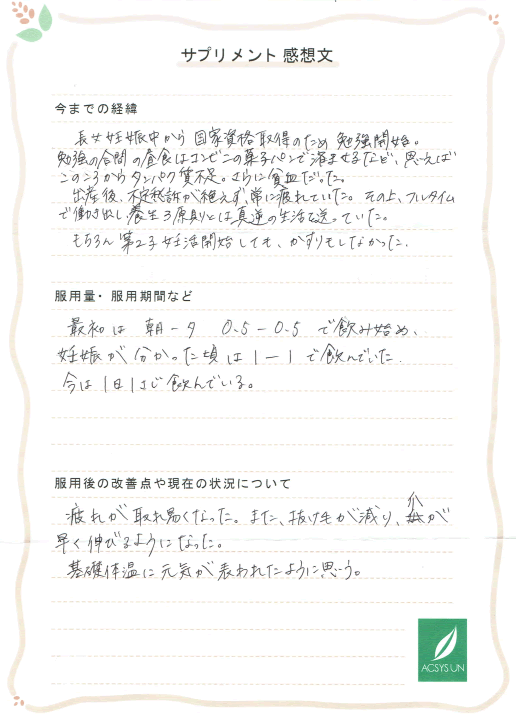 サプリメント 感想文
今までの経緯
長女妊娠中から国家資格取得のため勉強開始。
勉強の合間の昼食はコンビニの菓子パンで済ませるなど、思えば
このころからタンパク質不足。さらに貧血だった。
出産後、不定愁訴が絶えず、常に疲れていた。その上、フルタイム
で働き出し、養生3原則とは真逆の生活を送っていた。
もちろん第2子妊活開始しても、かすりもしなかった.
服用量・服用期間など
最初は 朝-夕 0.5-0.5 で飲み始め、
妊娠が分かった頃は1-1で飲んでいた.
今は1日1さじ飲んでいる。
服用後の改善点や現在の状況について
疲れが取れ易くなった。また、抜け毛が減り、が
早く伸びるようになった。
基礎体温に元気が表われたように思う。
ACSYS UN